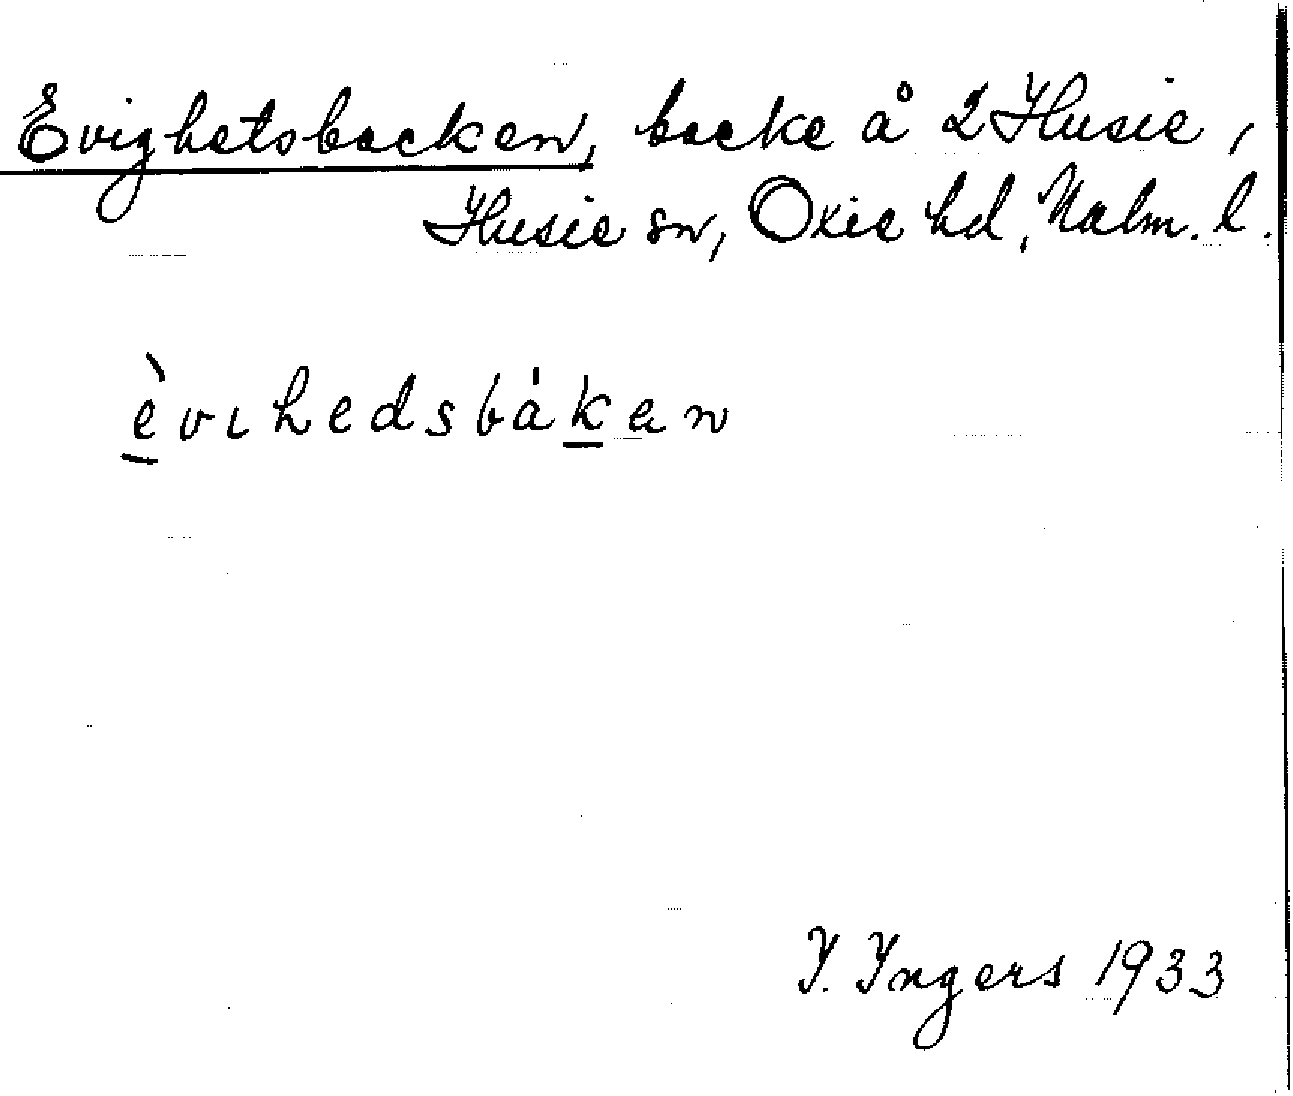 Evighetsbacken, backe å 2 Husie,
Husie sn, Oxie hd, Malm. l.
èvıhedsbáken
I. Ingers 1933